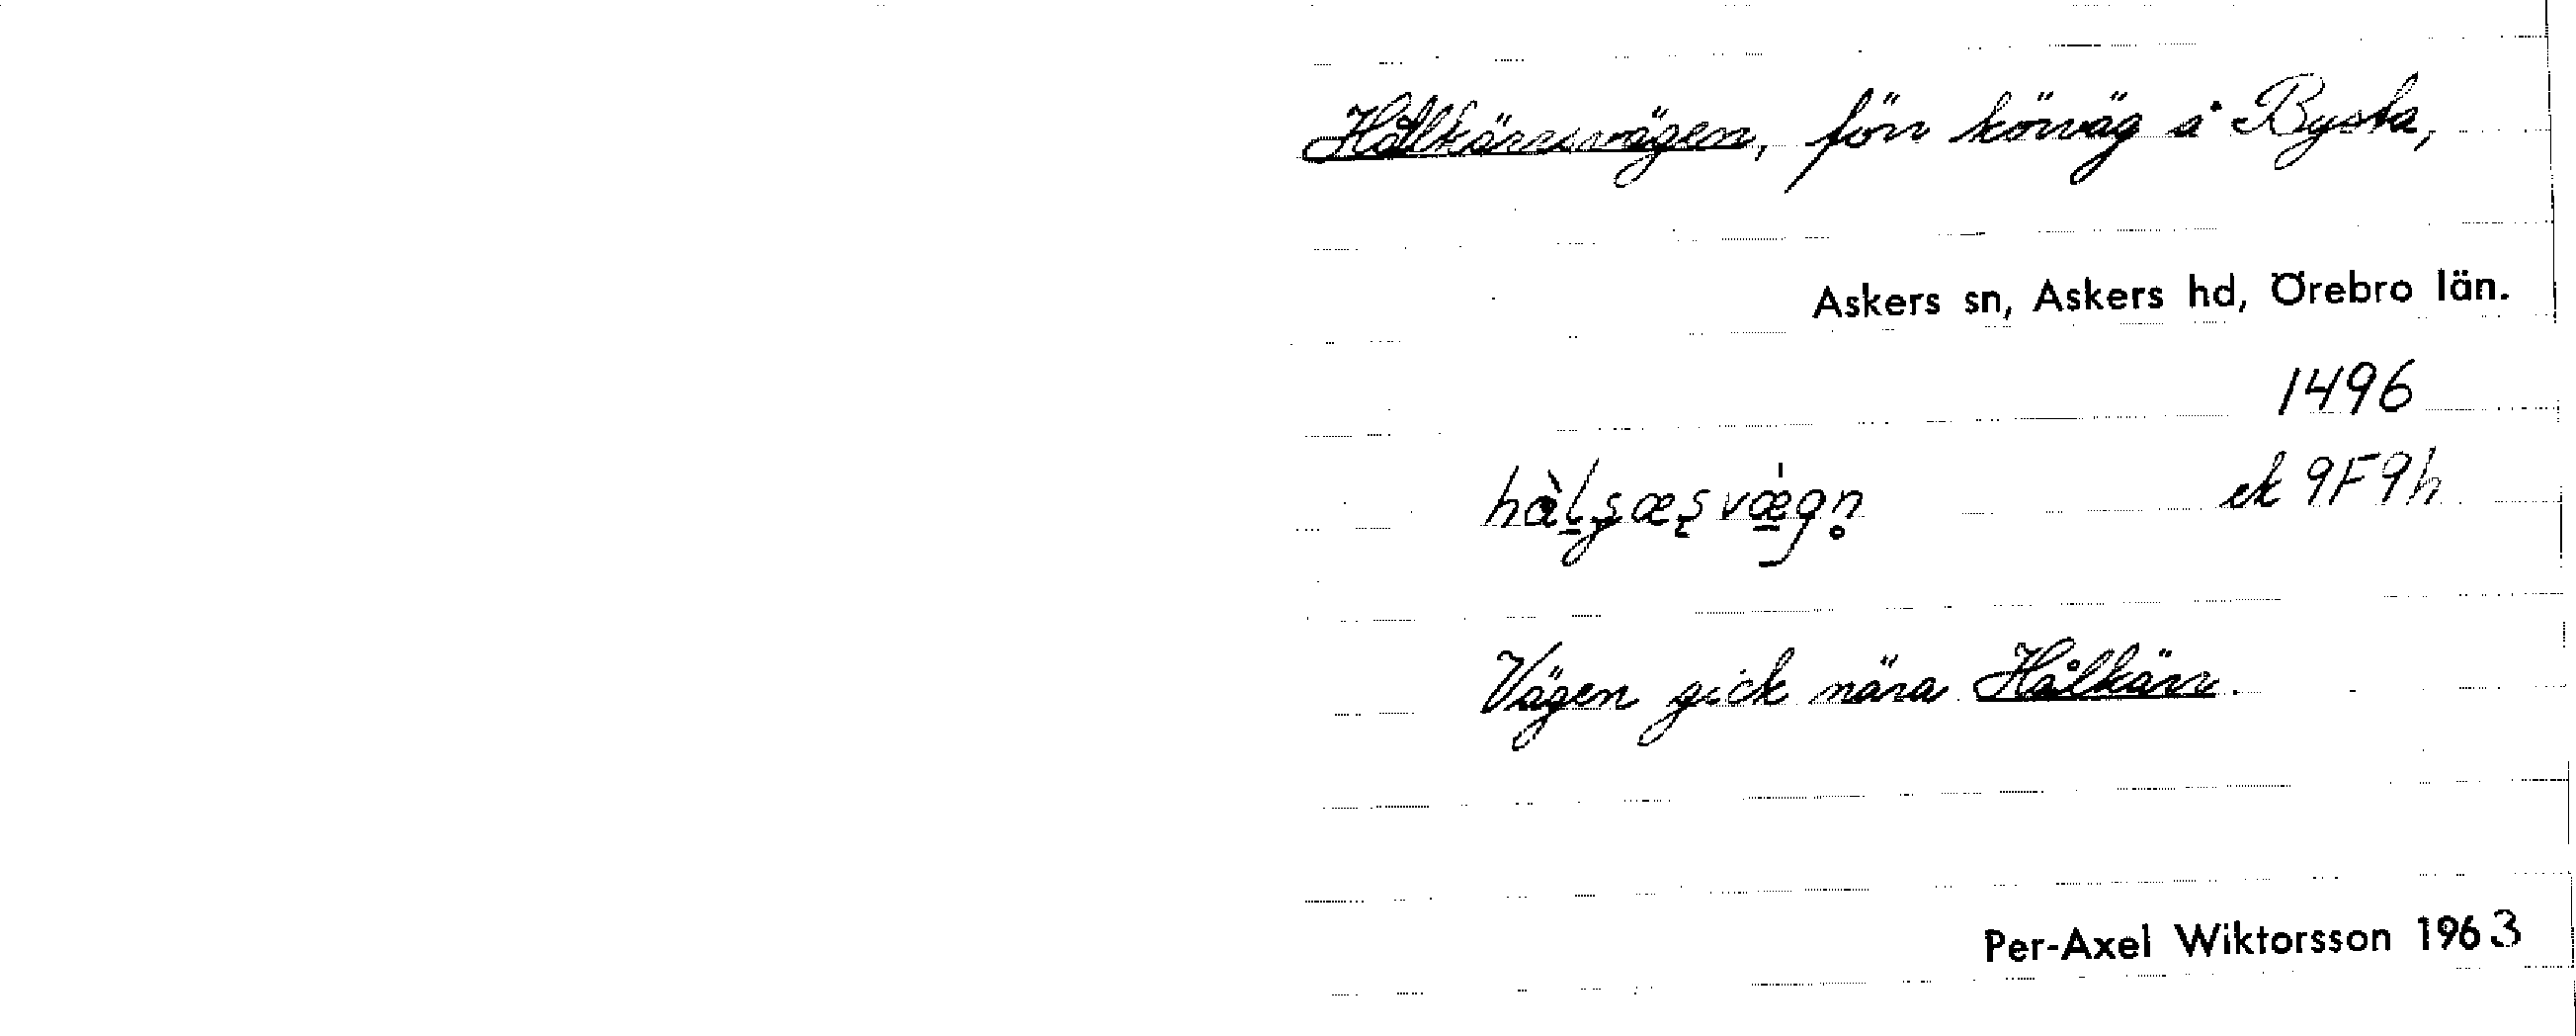 Hålkärrsvägen, förr körväg å Bysta,
Askers sn, Askers hd, Örebro län.
1496
ek 9F9h
Vägen gick nära Hålkärr.
Per-Axel Wiktorsson 1963